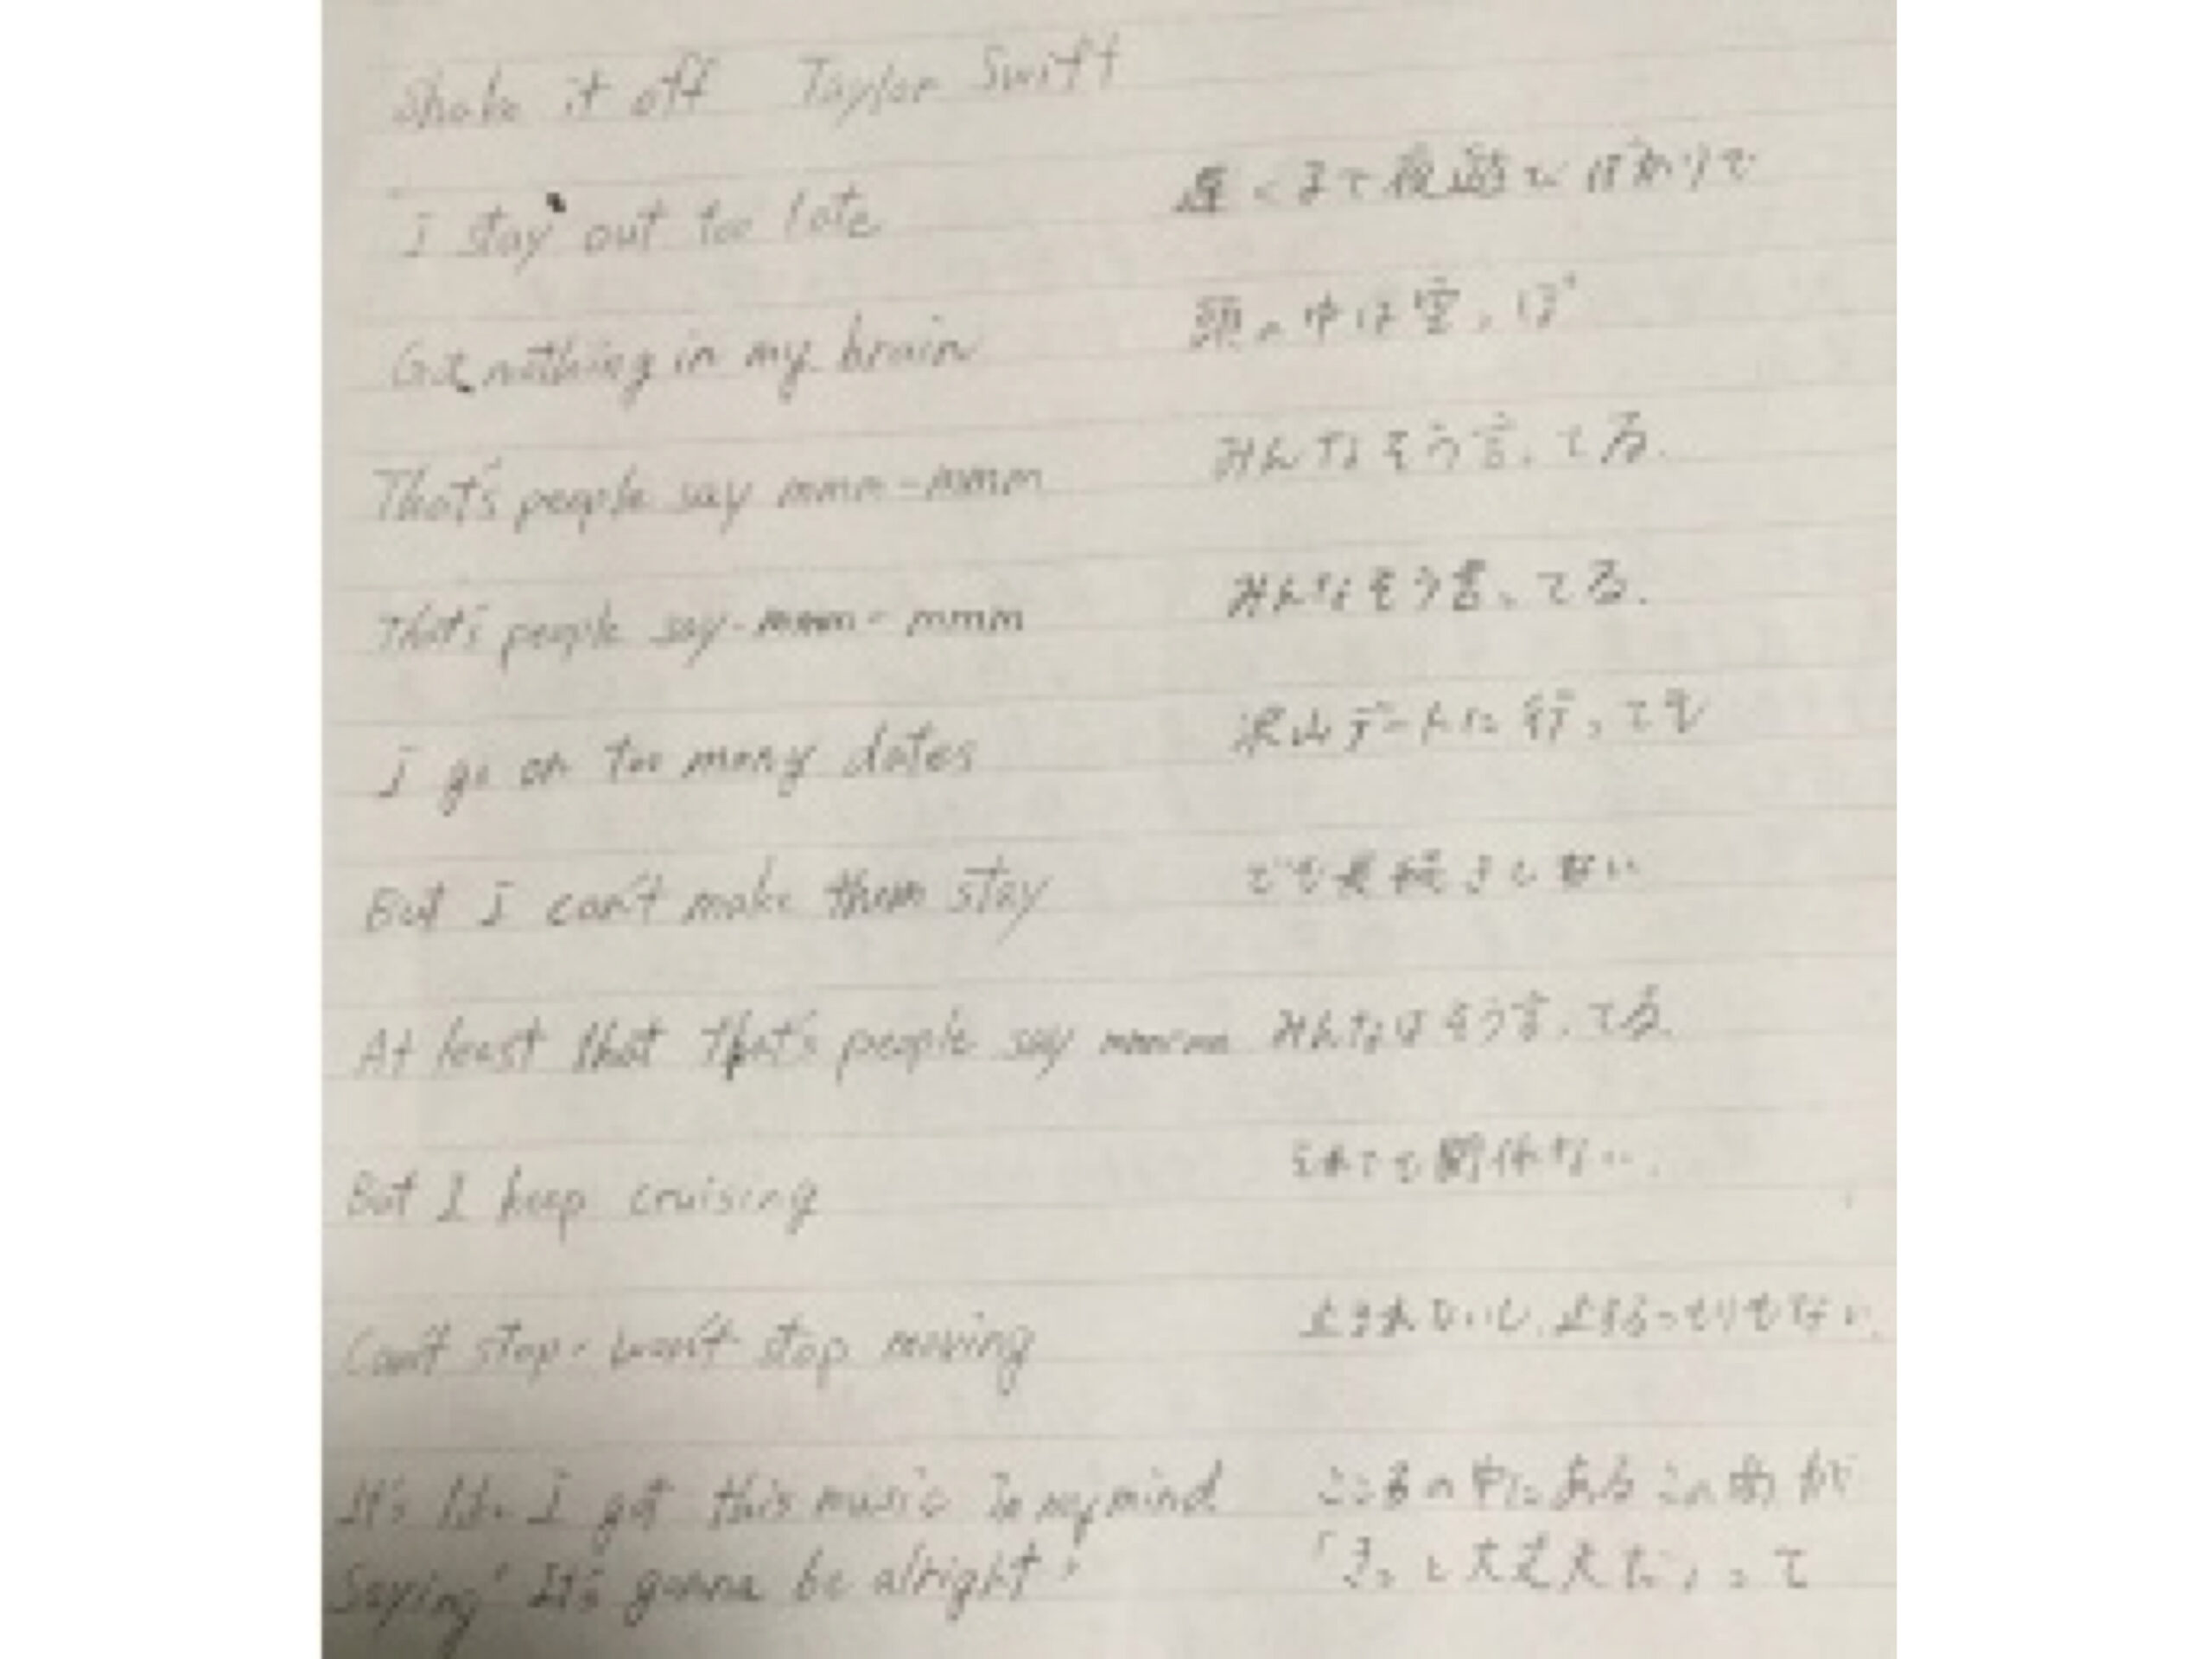 Shake it off Taylor Swift
I stay out too late 遅くまで夜遊びばかりで
Got nothing in my brain 頭の中は空っぽ
That's people say mmm-mmm みんなそう言ってる.
That's people say-mmm-mmm みんなそう言ってる.
I go on too many dates 沢山デートに行っても
But I can't make them stay でも長続きしない
At least that That's people say みんなはそう言ってる.
But I keep cruising それでも関係ない.
Can't stop. won't stop moving 止まれないし、止まるつもりもない.
It's like I got this music In my mind こころの中にあるこの曲が
Saying' It's gonna be alright' 「きっと大丈夫だ」って